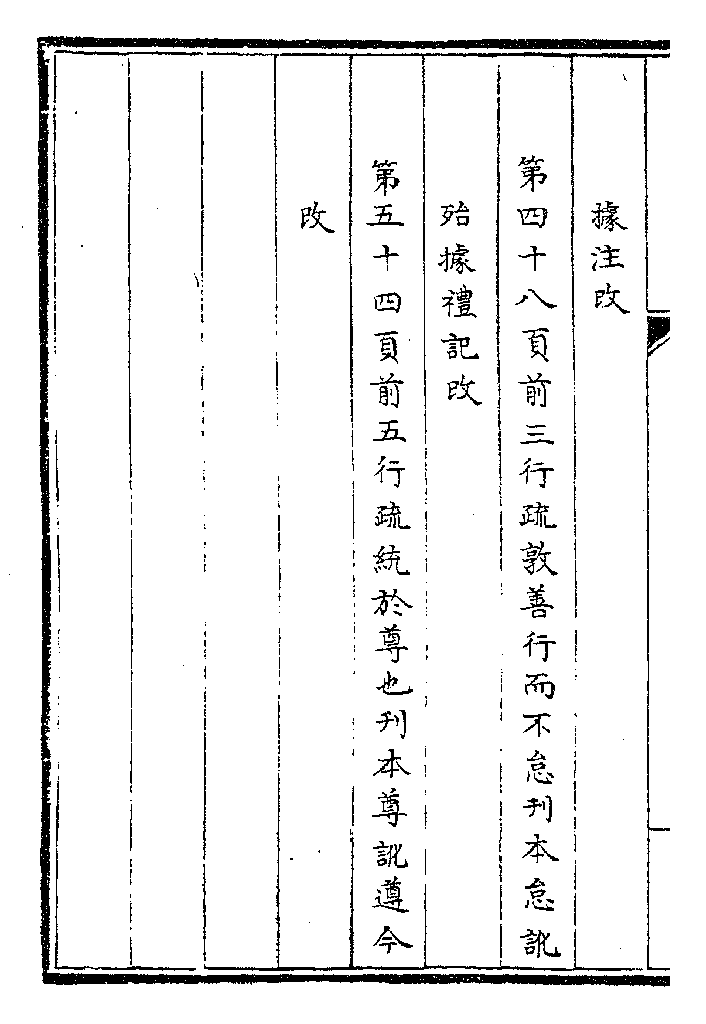 據注改
第四十八頁前三行疏敦善行而不怠刊本怠訛
殆據禮記改
第五十四頁前五行疏統於尊也刊本尊訛遵今
改